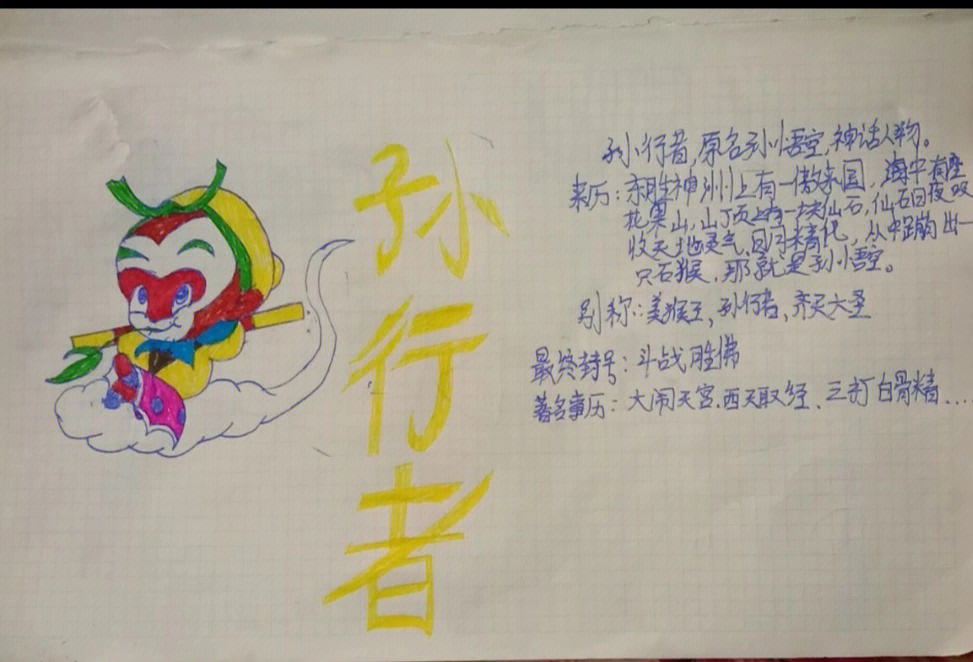 孙行者
孙行者,原名孙悟空,神话人物。
来历:东胜神洲上有一傲来国,海中有座
花果山,山顶上有一块仙石,仙石日夜吸
收天地灵气,日月精化,从中蹦出一
只石猴,那就是孙悟空。
别称:美猴王,孙行者,齐天大圣
最终封号:斗战胜佛
著名事历:大闹天宫.西天取经、三打白骨精....